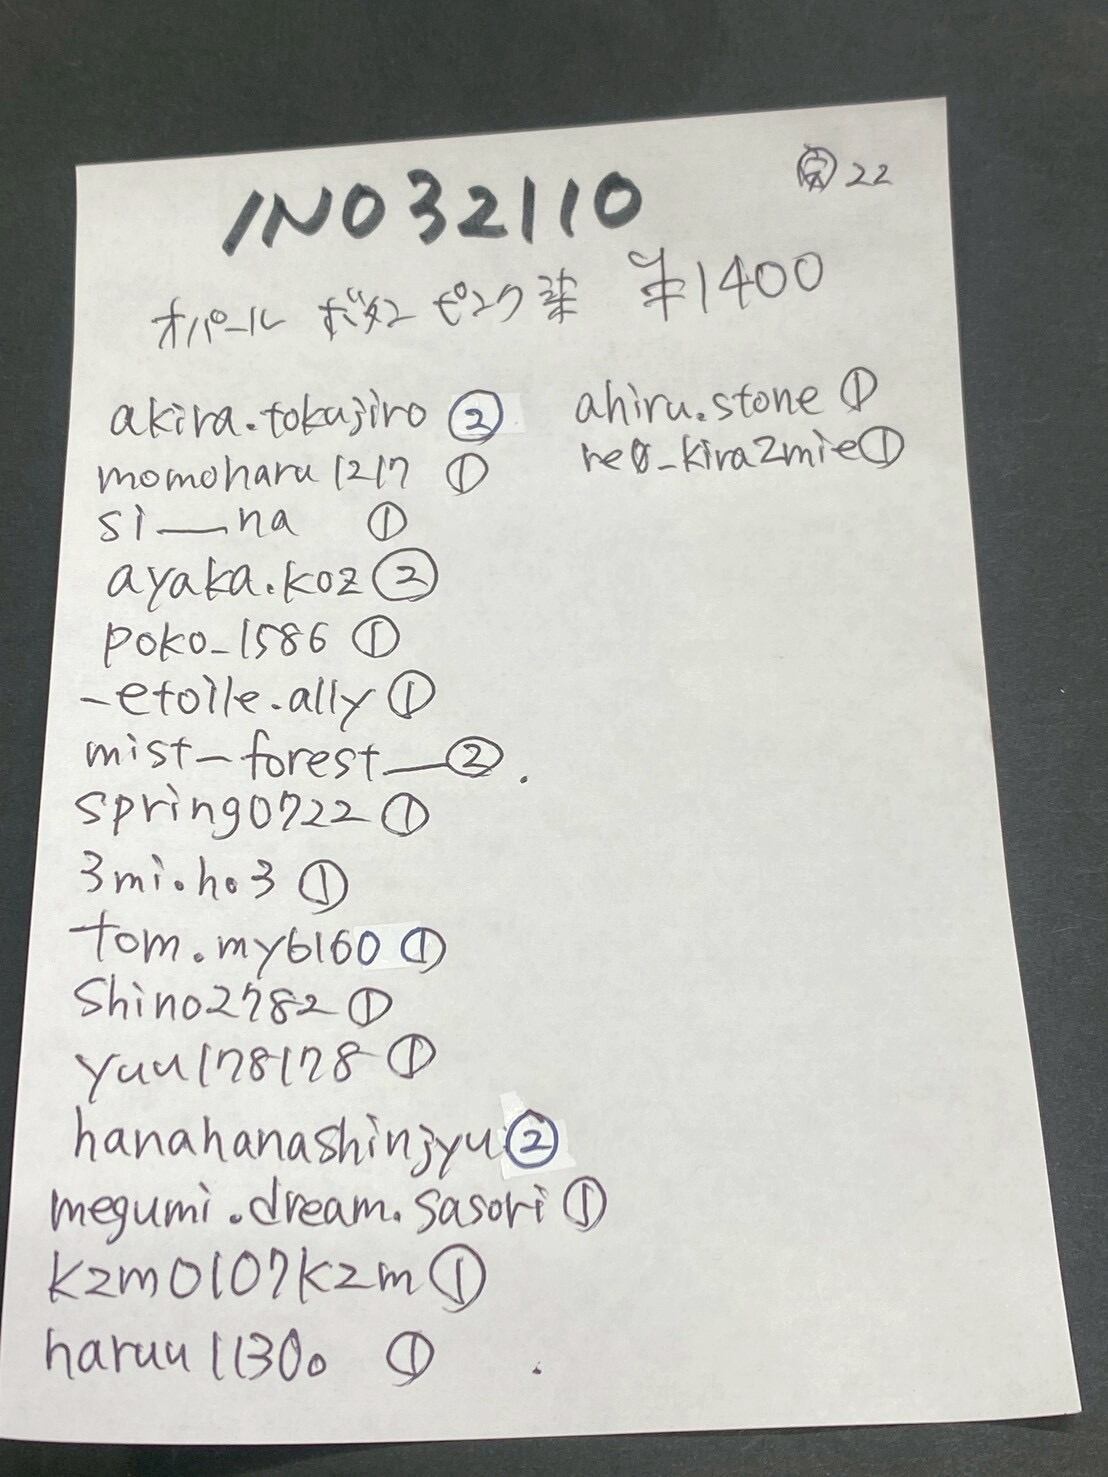 INO32110
22
オパール ボタン ピンク染 ¥1400
akira.tokujiro ②
momoharu1217 ①
si___na ①
ayaka.koz ②
poko_1586 ①
_etoile.ally ①
mist_forest__ ②
spring0722 ①
3mi.h.3 ①
tom.my6160 ①
shino2782 ①
yuu178178 ①
hanahanashinjyu ②
megumi.dream.sasori ①
kzm0107kzm ①
haruu1130o ①
ahiru.stone ①
re0_kira2mie ①